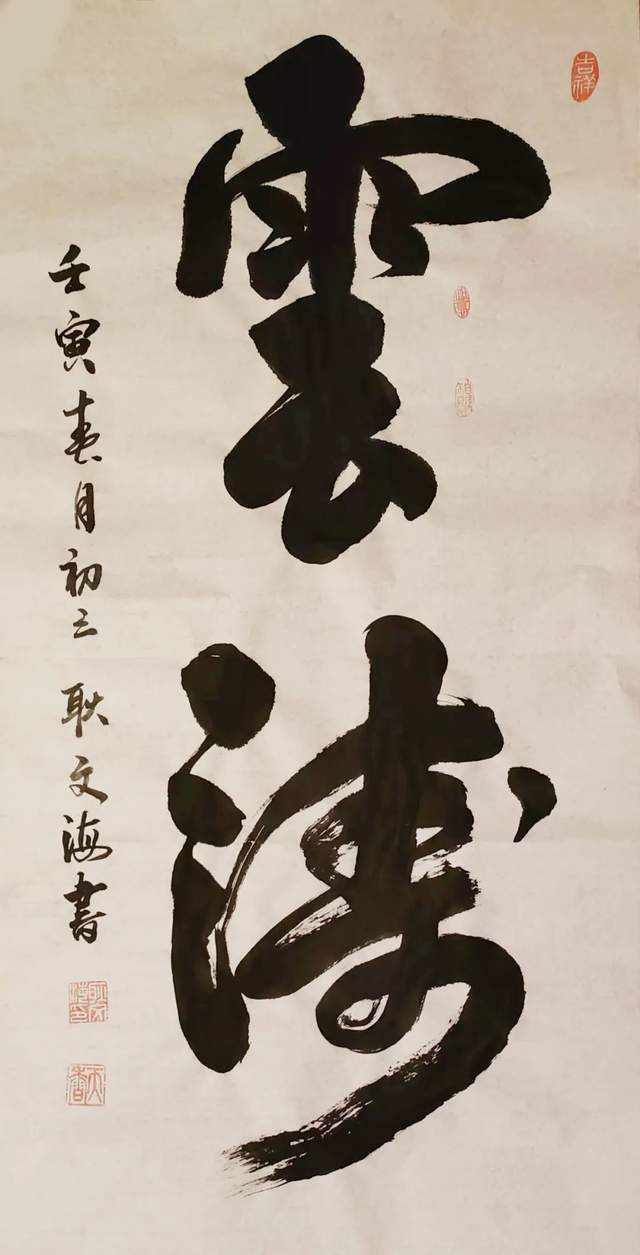 雲濤
壬寅春月初三 耿文海書
吉祥